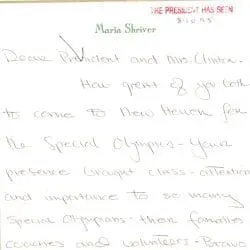 THE PRESIDENT HAS SEEN
8-10-95
Maria Shriver
Dear President and Mrs. Clinton.
How great of you both
to come to New Haven for
the Special Olympics - Your
presence brought class - attention
and importance to so many
Special Olympians - their families
coaches and volunteers - Bravo